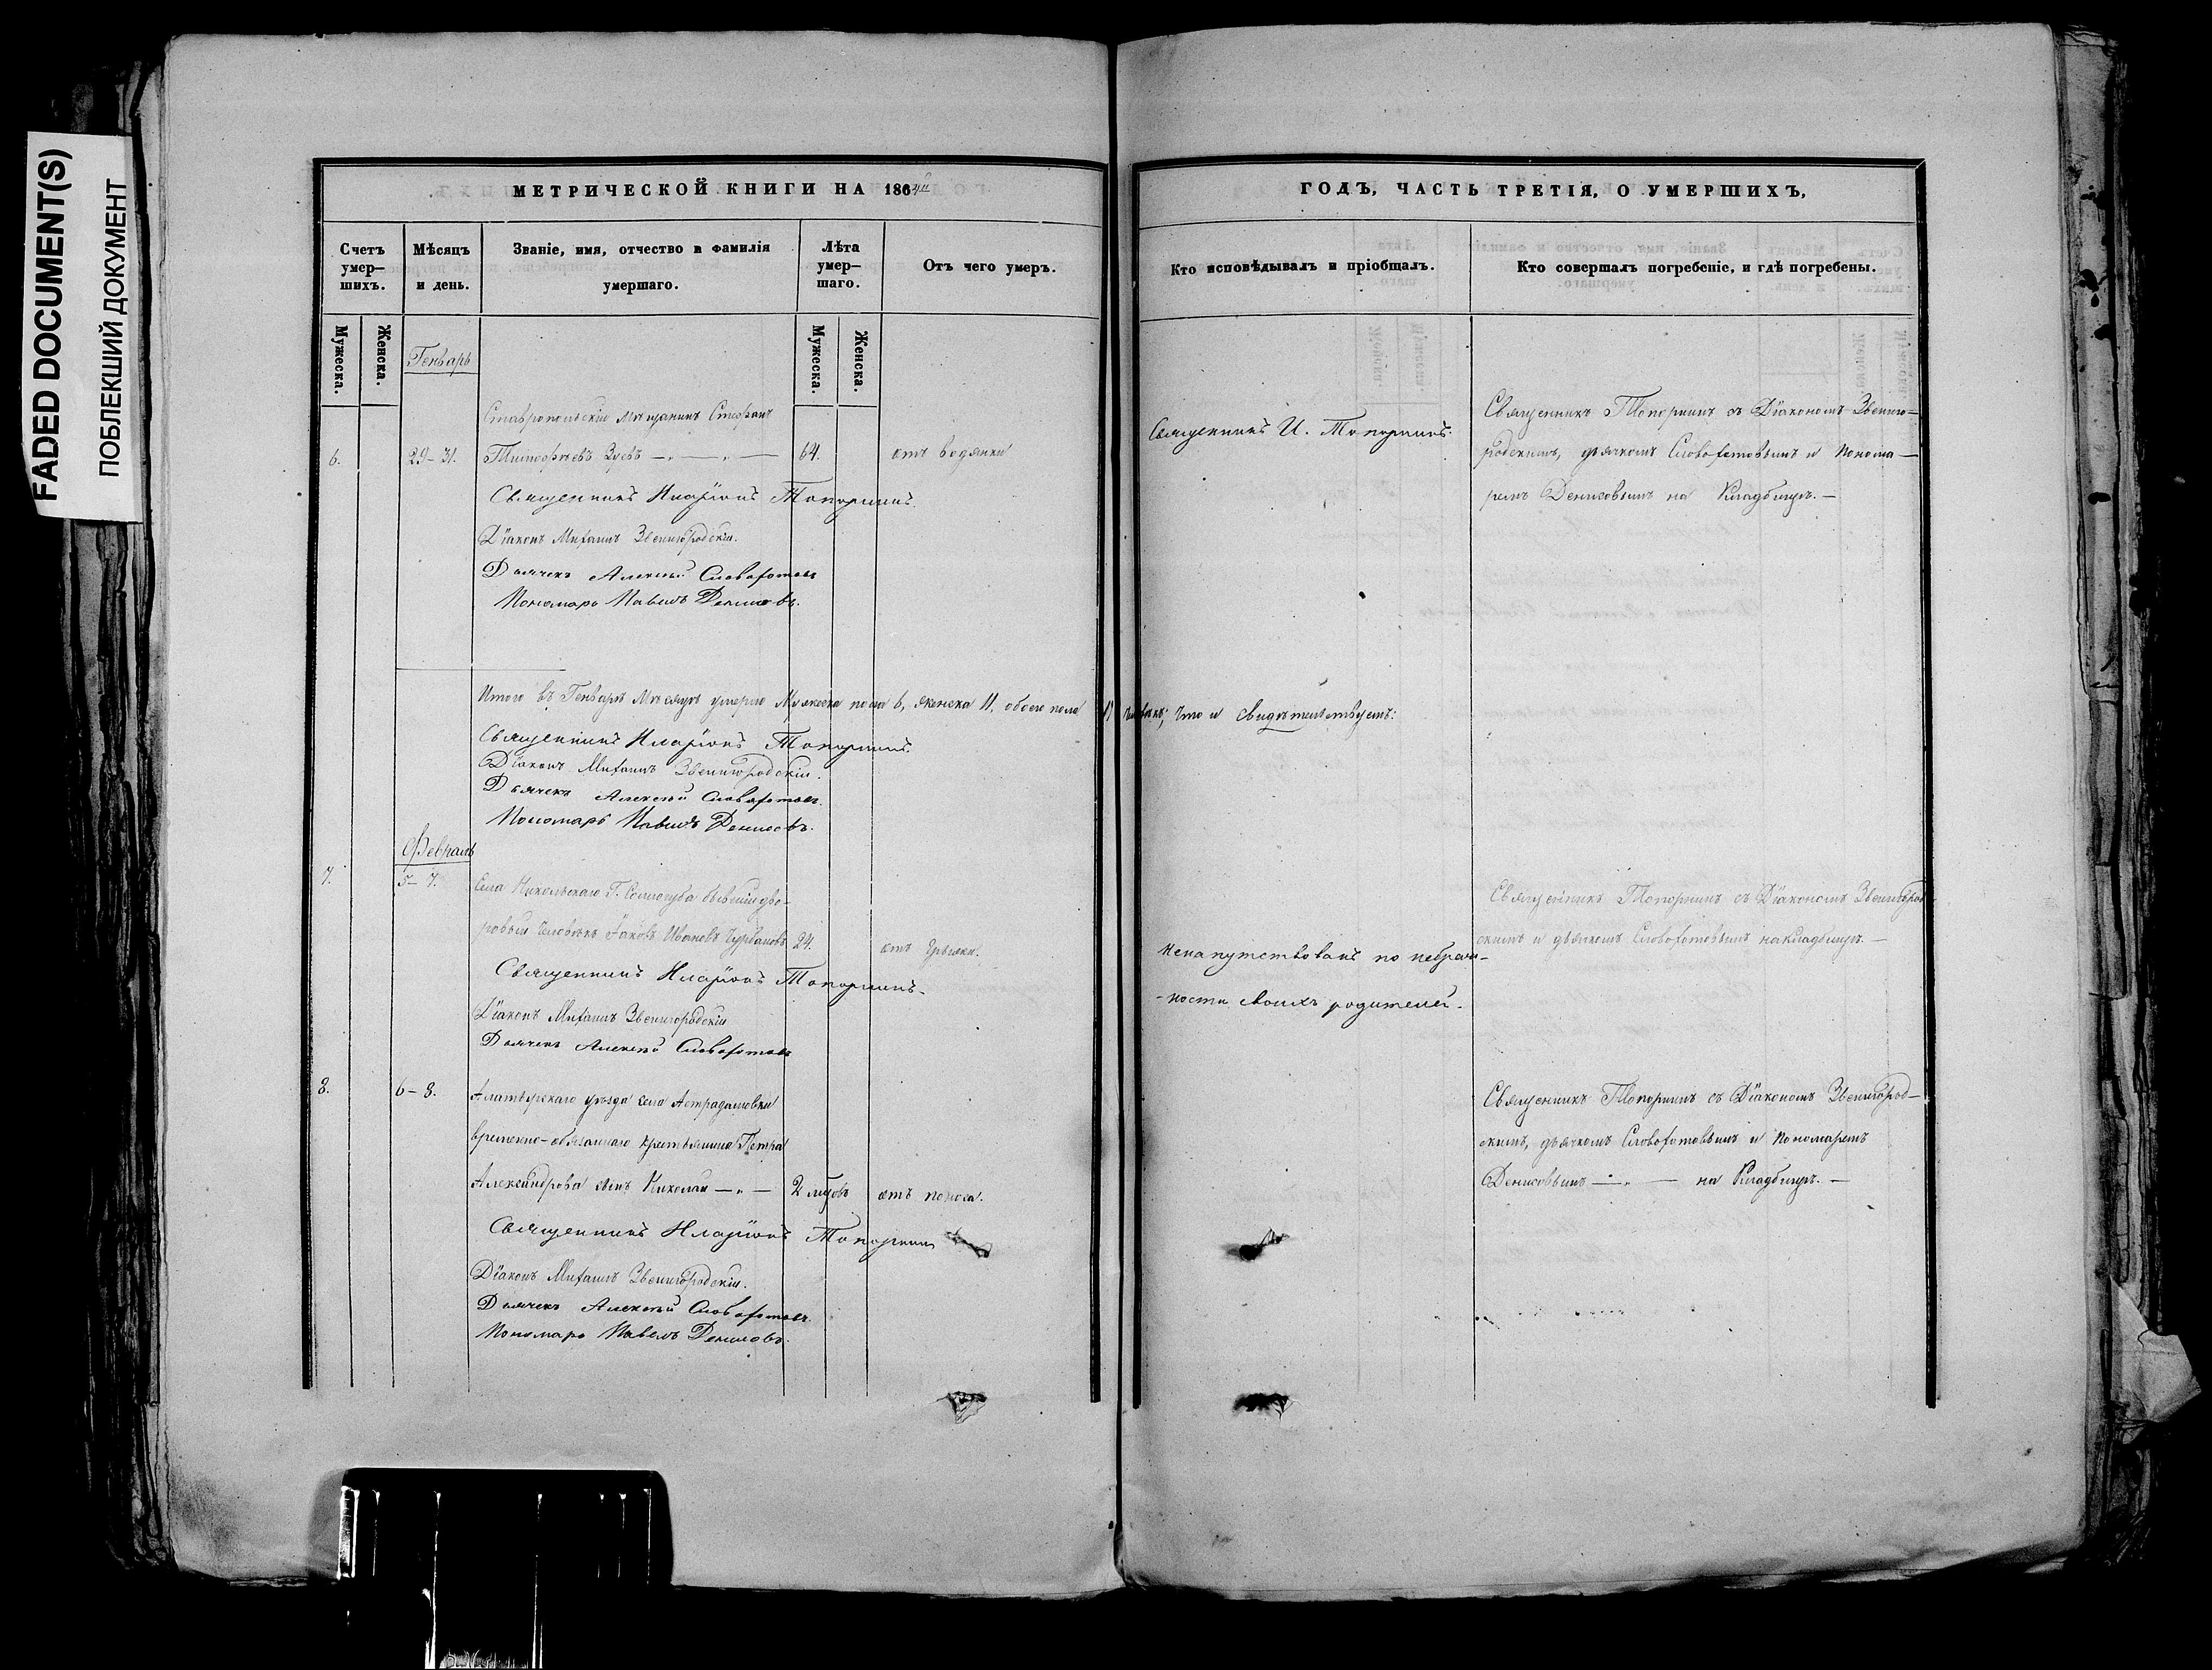 FADED DOCUMENT(S)
ПОБЛЕКШИЙ ДОКУМЕНТ
МЕТРИЧЕСКОЙ КНИГИ НА 1864й
Счетъ умер-шихъ.
Мѣсяцъ и день.
Званіе, имя, отчество и фамилія умершаго.
Лѣта умер-шаго.
Отъ чего умеръ.
Мужеска.
Женска.
Мужеска.
Женска.
Генварь
Ставропольскій мѣщанинъ Стефанъ
6. 29-31. Тимофѣевъ Зуевъ — „ — „ — 64. отъ водянки
Священникъ Иларіонъ Топорнинъ.
Діаконъ Михаилъ Звенигородскій.
Дьячекъ Алексѣй Словохотовъ
Пономарь Павелъ Денисовъ.
Итого въ Генварѣ мѣсяцѣ умерло мужеска пола 6, женска 11, обоего пола 17 человѣкъ, что и свидѣтельствуемъ:
Священникъ Иларіонъ Топорнинъ.
Діаконъ Михаилъ Звенигородскій.
Дьячекъ Алексѣй Словохотовъ.
Пономарь Павелъ Денисовъ.
Февраль
7. 5-7. Села Никольскаго Г. Соллогуба бывшій дво-
ровый человѣкъ Іаковъ Ивановъ 24. отъ грыжи.
Священникъ Иларіонъ Топорнинъ.
Діаконъ Михаилъ Звенигородскій
Дьячекъ Алексѣй Словохотовъ
8. 6-8. Алатырскаго уѣзда села Астрадамовки
временно-обязаннаго крестьянина Петра
Александрова сынъ Николай — „ — 2 мѣсяцовъ отъ поноса.
Священникъ Иларіонъ Топорнинъ
Діаконъ Михаилъ Звенигородскій.
Дьячекъ Алексѣй Словохотовъ.
Пономарь Павелъ Денисовъ.
ГОДЪ, ЧАСТЬ ТРЕТІЯ, О УМЕРШИХЪ,
Кто исповѣдывалъ и пріобщалъ.
Кто совершалъ погребеніе, и гдѣ погребены.
Священникъ И. Топорнинъ.
Священникъ Топорнинъ съ Діакономъ Звениго-
родскимъ, дьячкомъ Словохотовымъ и понома-
ремъ Денисовымъ на кладбищѣ. —
Ненапутствованъ по небреж-
-ности своихъ родителей.
Священникъ Топорнинъ съ Діакономъ Звенигород-
скимъ и дьячкомъ Словохотовымъ на кладбищѣ. —
Священникъ Топорнинъ съ Діакономъ Звенигород-
скимъ, дьячкомъ Словохотовымъ и пономаремъ
Денисовымъ — „ — на кладбищѣ. —